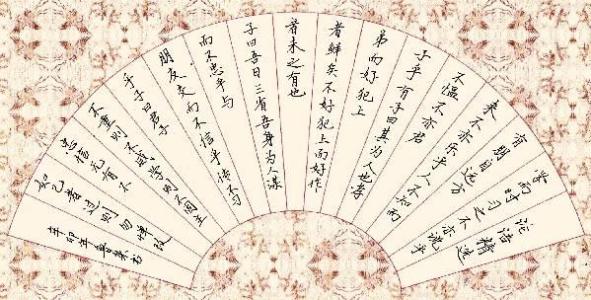 论语精选
学而时习之不亦说乎
有朋自远方
来不亦乐乎人不知而
不愠不亦君
子乎有子曰其为人也孝
弟而好犯上
者鲜矣不好犯上而好作
者未之有也
子曰吾日三省吾身为人谋
而不忠乎与
朋友交而不信乎传不习
乎子曰君子
不重则不威学则不固主
忠信无有不
如己者过则勿惮改
辛卯年